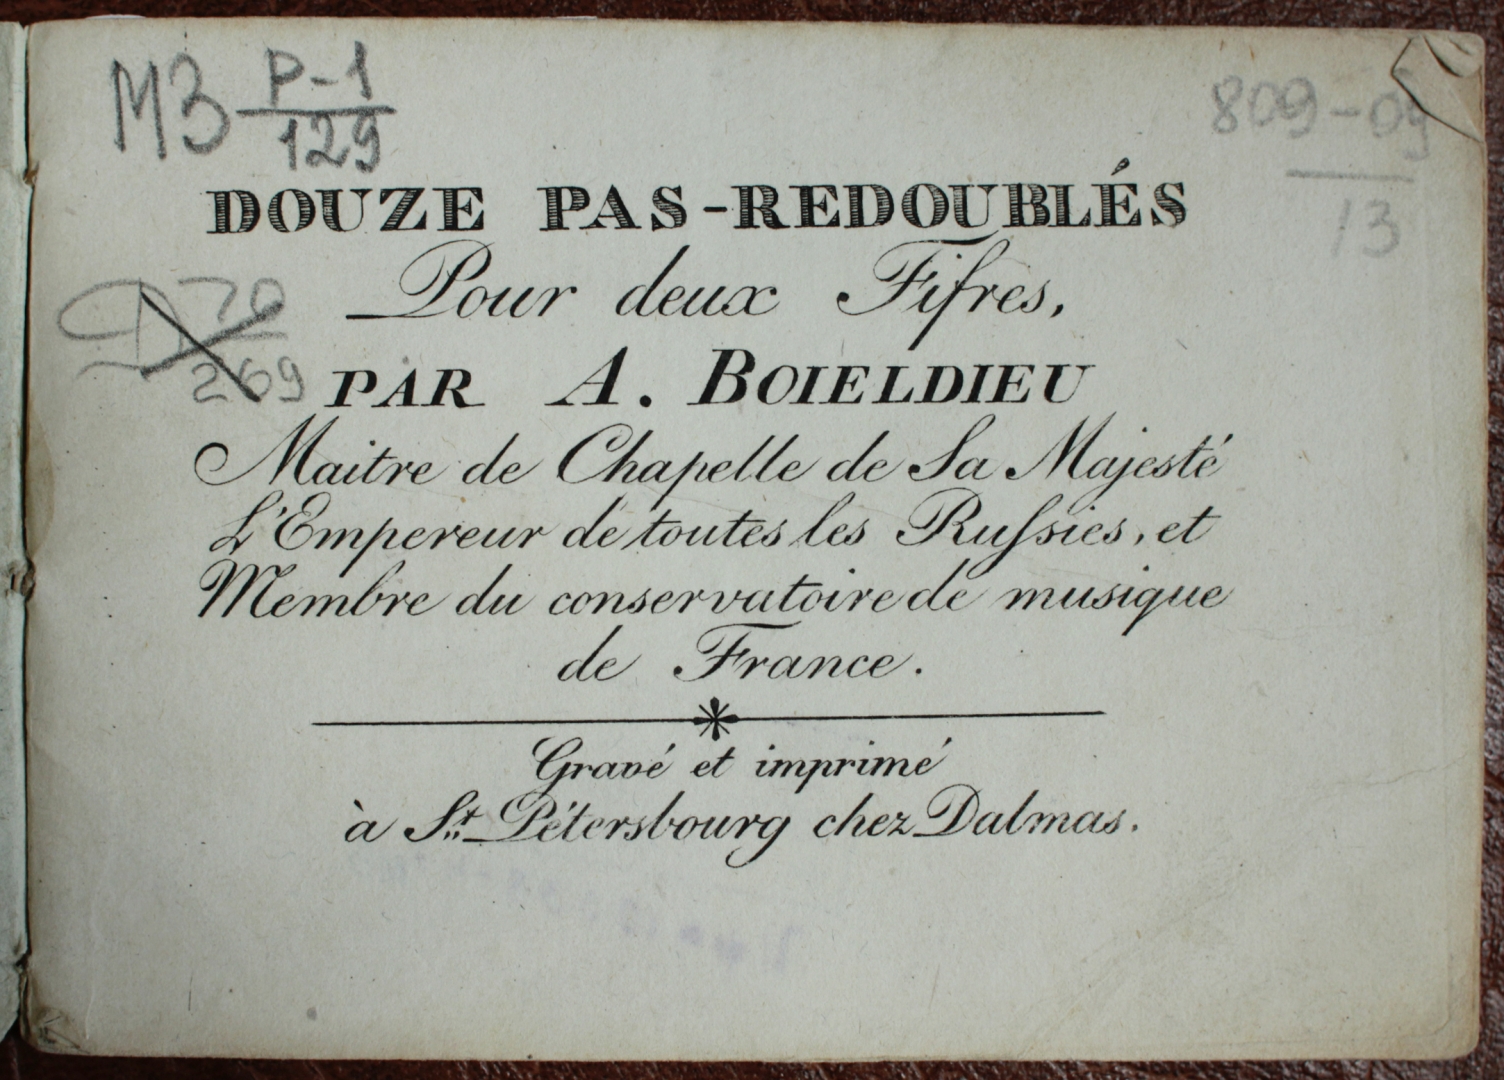 МЗ Р-1
129
809-09
13
DOUZE PAS-REDOUBLÉS
Pour deux Fifres,
70
269
PAR A. BOIELDIEU
Maitre de Chapelle de Sa Majesté
L'Empereur de toutes les Ruſsies, et
Membre du conservatoire de musique
de France.
Gravé et imprimé
à St. Pétersbourg chez Dalmas.